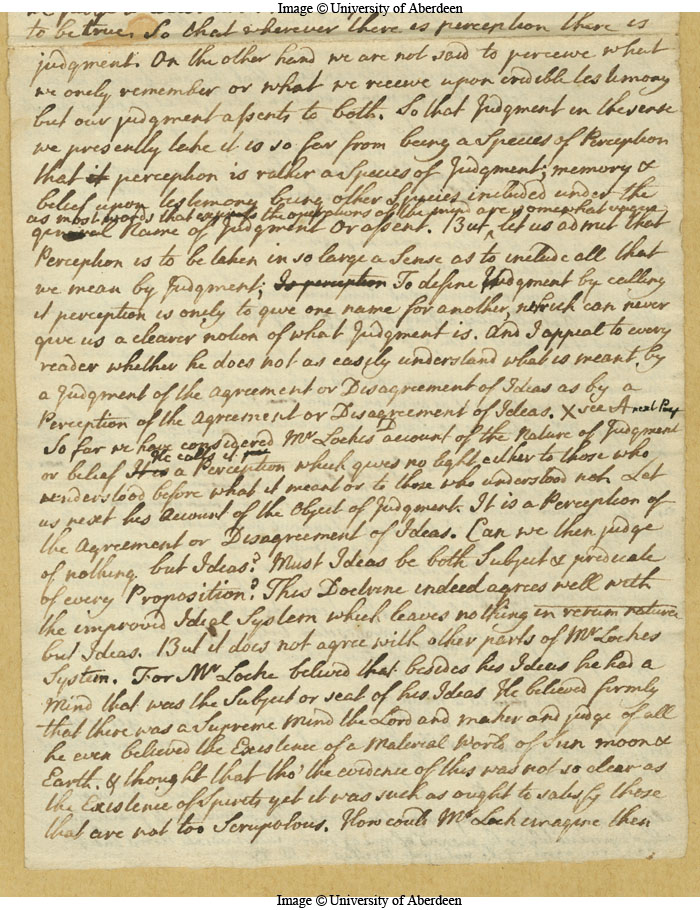 Image © University of Aberdeen
to be true. So that wherever there is perception there is
judgment. On the other hand we are not said to perceive what
we onely remember or what we receive upon credible testimony
but our judgment assents to both. So that Judgment in the sense
we presently take it is so far from being a Species of Perception
that it perception is rather a Species of Judgment; memory &
belief upon testimony being other Species included under the
as most words that express the operations of the mind are somewhat vague
general Name of Judgment or assent. But, let us admit that
Perception is to be taken in so large a Sense as to include all that
we mean by Judgment; Is perception To define Judgment by calling
it perception is onely to give one name for another, which can never
give us a clearer notion of what Judgment is. And I appeal to every
reader whether he does not as easily understand what is meant by
a Judgment of the agreement or Disagreement of Ideas as by a
Perception of the Agreement or Disagreement of Ideas. X see A next Page
So far we have considered Mr Lockes account of the Nature of Judgment
He calls it
or belief It is a Perception which gives no light either to those who
understood before what it meant or to those who understood not. Let
us next his account of the Object of Judgment. It is a Perception of
the Agreement or Disagreement of Ideas. Can we then judge
of nothing but Ideas? Must Ideas be both Subject & predicate
of every Proposition? This Doctrine indeed agrees well with
the improved Ideal System which leaves nothing in rerum natura
but Ideas. But it does not agree with other parts of Mr Lockes
System. For Mr Locke belived that besides his Ideas he had a
Mind that was the Subject or seat of his Ideas He believed firmly
that there was a Supreme Mind the Lord and maker and judge of all
he even believed the Existence of a Material World of Sun moon &
Earth. & thought that tho' the evidence of this was not so clear as
the Existence of Spirits yet it was such as ought to satisfy these
that are not too Scrupolous. How could Mr Lock imagine then
Image © University of Aberdeen